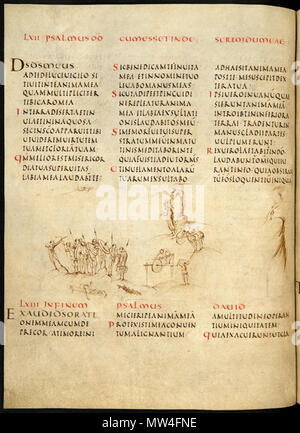 LXII PSALMUS DD
DSDSMEUS
ADTEDELUCEUIGILO SI
TIUITINTEANIMAMEA
QUAMMULTIPLICITER
TIBICAROMEA
INTERRADESERTAETIN
UIAETINAQUOSA
SICINSCOAPPARUITIBI
UTUIDERIMUIRTUTEM
TUAMETGLORIATUAM
QMMELIORESTMISERICOR
DIATUASUPERUITAS
LABIAMEALAUDABTE
CUMESSETINDE
SICBENEDICAMTEINUITA
MEAETINNOMINETUO
LEUABOMANUSMEAS
SICUTADIPEETPINGUEDI
NEREPLEATURANIMA
MEAETLABIAEXSULTATIO
NISLAUDABITOSMEU
SIMEMORFUITUISUPER
STRATUMMEUMINMATU
TINISMEDITABORINTE
QUIAFUISTIADIUTORMS
ETINUELAMENTOALARU
TUARUMEXSULTABO
SERTOIDUMEAE
ADHAESITANIMAMEA
POSTTE MESUSCEPITDEX
TERATUA
IPSIUEROINUANUMQUAE
SIERUNTANIMAMEA
INTROIBUNTININFERIORA
TERRAE TRADENTURIN
MANUSGLADIIPARTES
UULPIUMERUNT
REXUEROLAETABITINDO
LAUDABUNTOMSQUIIU
RANTINEO QUIAOBSTRUC
TUESTOSLOQUENTIUINIQUA
LXIII INFINEM
EXAUDIDSORATI
ONEMMEAMCUMDE
PRECOR ATIMOREINI
PSALMUS
MICIERIPEANIMAMEA
PROTEXISTIMEACONUEN
TUMALIGNANTIUM
DAUID
AMULTITUDINEOPERAN
TIUMINIQUITATEM
QUIAEXACUERUNTUT
alamy
Image ID: MW4FNE
www.alamy.com